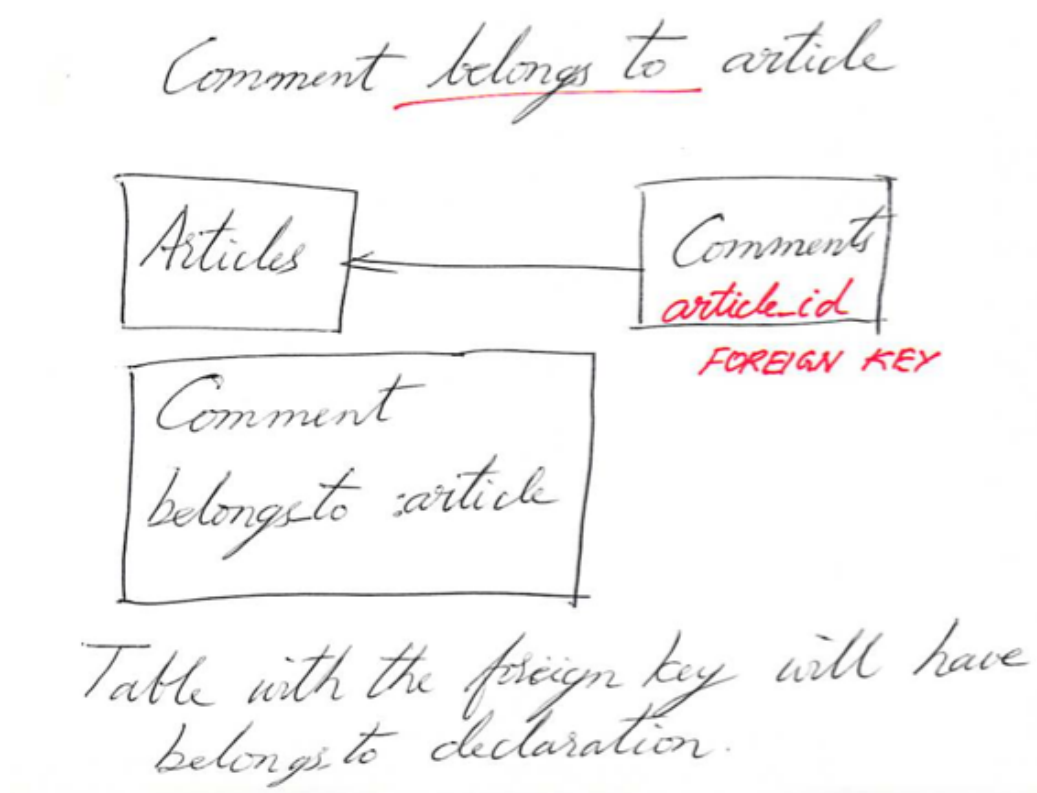 Comment belongs to article
Articles
Comments
article_id
FOREIGN KEY
Comment
belongs_to :article
Table with the foreign key will have
belongs_to declaration.